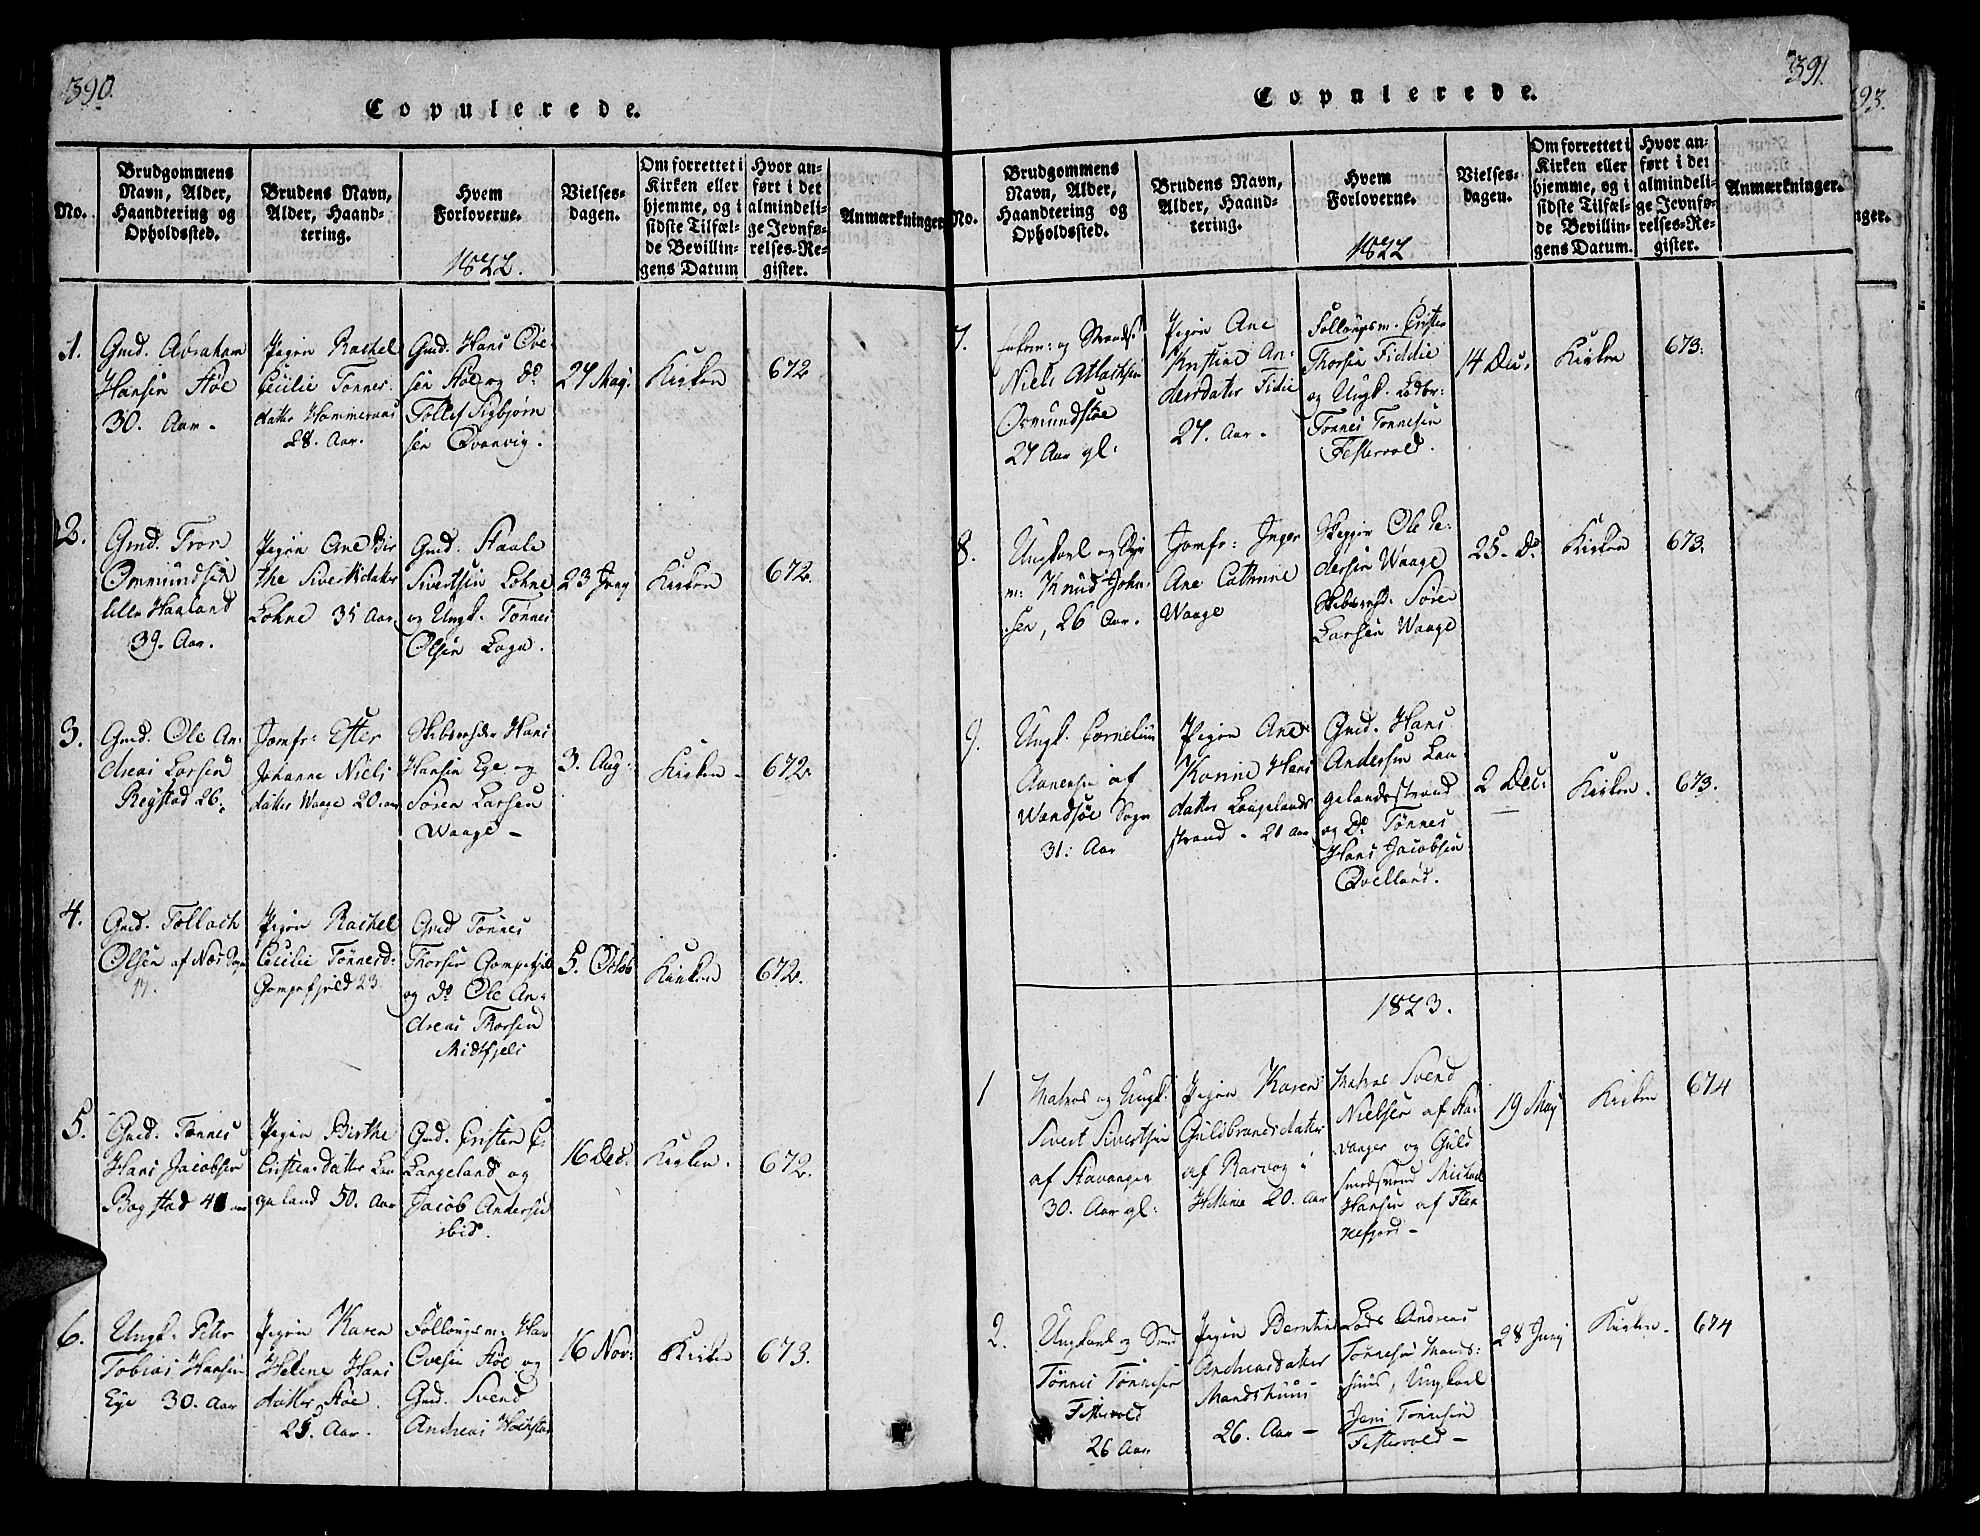 390.
Copulerede.
No.
Brudgommens
Navn, Alder,
Haandtering og
Opholdssted.
Brudens Navn,
Alder, Haand-
tering.
Hvem
Forloverne.
1822.
Vielses-
dagen.
Om forrettet i
Kirken eller
hjemme, og i
sidste Tilfæl-
de Bevillin-
gens Datum
Hvor an-
ført i det
almindeli-
ge Jevnfø-
relses-Re-
gister.
Anmærkninger
1.
Gmd. Abraham
Hansen Støe
30. Aar.
Pigen Rachel
Cecilie Tønnes-
datter Hammersnes
28. Aar.
Gmd. Hans Ove-
sen Støe og do
Tollef Sigbjørn
sen Qvanvig.
27 May.
Kirken
672
2.
Gmd. Tron
Ommundsen
lille Haaland
39. Aar.
Pigen Ane Bir
the Sivertsdatter
Lohne 35 Aar
Gmd. Staale
Sivertsen Lohne
og Ungk. Tønnes
Olsen Loga.
23 Juny
Kirken
672.
3.
Gmd. Ole An-
dreas Larsen
Regstad 26.
Jomfr: Ester
Johanne Niels
datter Waage 20. aar
Skibsreder Hans
Hansen Ege og
Søren Larsen
Waage –
3. Aug.
Kirken –
672.
4.
Gmd. Tollach
Olsen af Næs Sogn
Pigen Rachel
Cecilie Tønnesd:
Gompefjeld 23
Gmd Tønnes
Thorsen Gompefjeld
og do Ole An-
dreas Thorsen
Midtfjeld
5. Octob
Kirken
672.
5.
Gmd. Tønnes
Hans Jacobsen
Bogstad 41 aar
Pigen Birthe
Cristensdatter Lan
geland 50. Aar
Gmd. Cristen C:
Langeland og
Jacob Andersen
ibid.
16 Dec.
Kirken.
672.
6.
Ungk. Peter
Tobias Hansen
Ege 30. Aar
Pigen Karen
Helene Hans
datter Støe.
25. Aar.
Follougsm: Hans
Ovesen Støe og
Gmd. Svend
Andreas
16 Nov:
Kirken
673.
391.
Copulerede.
No.
Brudgommens
Navn, Alder,
Haandtering og
Opholdssted.
Brudens Navn,
Alder, Haand-
tering.
Hvem
Forloverne.
1822
Vielses-
dagen.
Om forrettet i
Kirken eller
hjemme, og i
sidste Tilfæl-
de Bevillin-
gens Datum.
Hvor an-
ført i det
almindeli-
ge Jevnfø-
relses-Re-
gister.
Anmærkninger.
7.
Niels Atlachsen
Osmundstøe
27 Aar gl:
Pigen Ane
Kristine An-
dersdatter Fidie
27. Aar.
Follougsm. Crister
Thorsen Fiddie
og Ungk. Lodbr:
Tønnes Tønnesen
Festervold.
14 Dec.
Kirken
673.
8.
Ungkarl og
m: Knud John-
sen, 26 Aar.
Jomfr: Inger
Ane Cathrine
Waage
Ole Pe-
dersen Waage
Skibsrhd. Søren
Larsen Waage
25. do
Kirken
673.
9.
Ungk. Cornelius
Aanensen af
Wandsøe Sogn
31. Aar
Pigen Ane
Karine Hans
datter Langelands
strand – 21 Aar
Gmd. Hans
Andersen Lan-
gelandsstrand
og do Tønnes
Hans Jacobsen
Qvelland.
2 Dec.
Kirken.
673.
1823.
1
Matros og Ungk:
Sivert Sivertsen
af Stavanger
30. Aar gl:
Pigen Karen
Guldbrandsdatter
af Rarvog i
Hitterøe 20. Aar
Matros Svend
Nielsen af Sta-
vanger og Guld
smedsvend Michael
Hansen af Flek
kefjord –
19 May
Kirken
674
2.
Ungkarl og
Tønnes Tønnesen
Festervold
26 Aar
Pigen Berntine
Andreasdatter
Mandshuus
26. Aar –
Lods Andreas
Tønnesen Mands-
huus, Ungkarl
Jens Tønnesen
Festervold –
28 Juny
Kirken.
674
93.
nger.